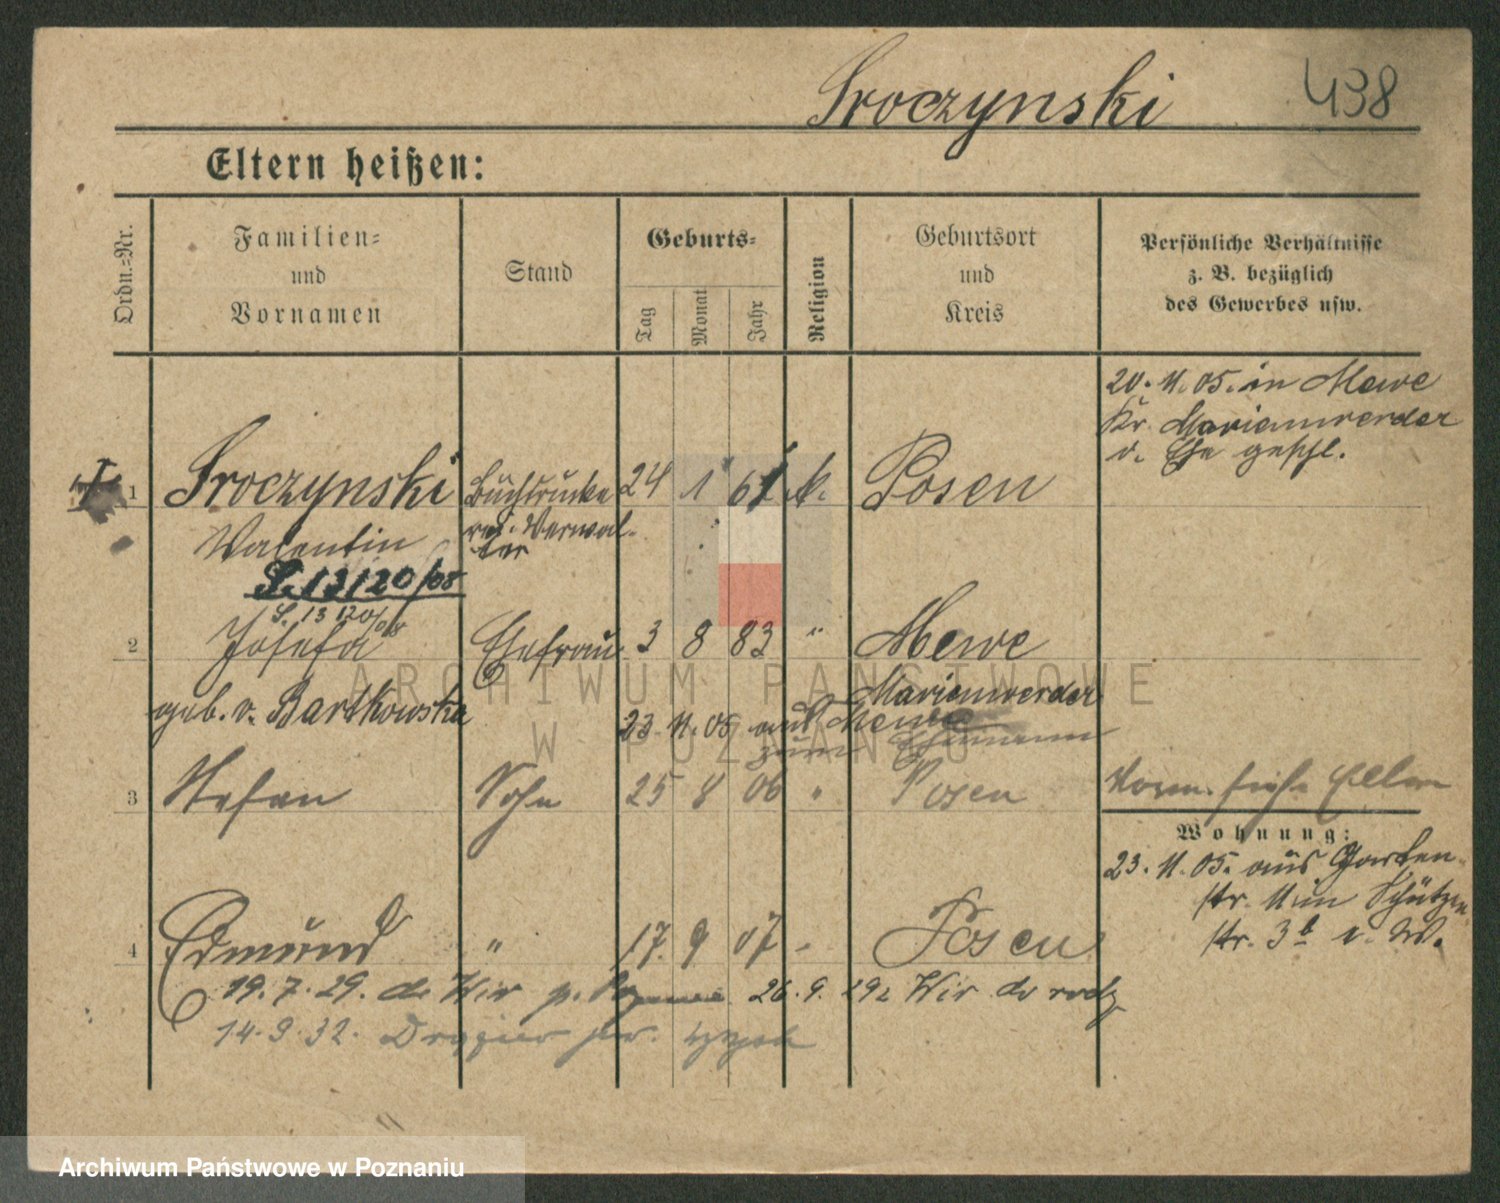 Sroczynski 438
Eltern heißen:
Ordn.-Nr.
Familien-
und
Vornamen
Stand
Geburts-
Tag
Monat
Jahr
Religion
Geburtsort
und
Kreis
Persönliche Verhältnisse
z. B. bezüglich
des Gewerbes usw.
20. 11. 05. in Mewe
Kr. Marienwerder
d. Ehe geschl.
1 Sroczynski Buchdrucke 24 1 61 k. Posen
Valentin rei. Verwal-
ter
S. 13120/08
S. 13120/08
2 Josefa Ehefrau 3 8 83 " Mewe
geb. v. Bartkowska Marienwerder
23. 11. 05 aus Mewe
zum Ehemann
3 Stefan Sohn 25 8 06 " Posen
Eltern
Wohnung:
23. 11. 05. aus Garten-
str. 11 in Schützen-
str. 3 b i. W.
4 Edmund " 17. 9 07 - Posen
19. 7. 29. do Wir p. 26. 9. 29 z Wir do rodz
14. 9. 32.
ARCHIWUM PAŃSTWOWE
W POZNANIU
Archiwum Państwowe w Poznaniu